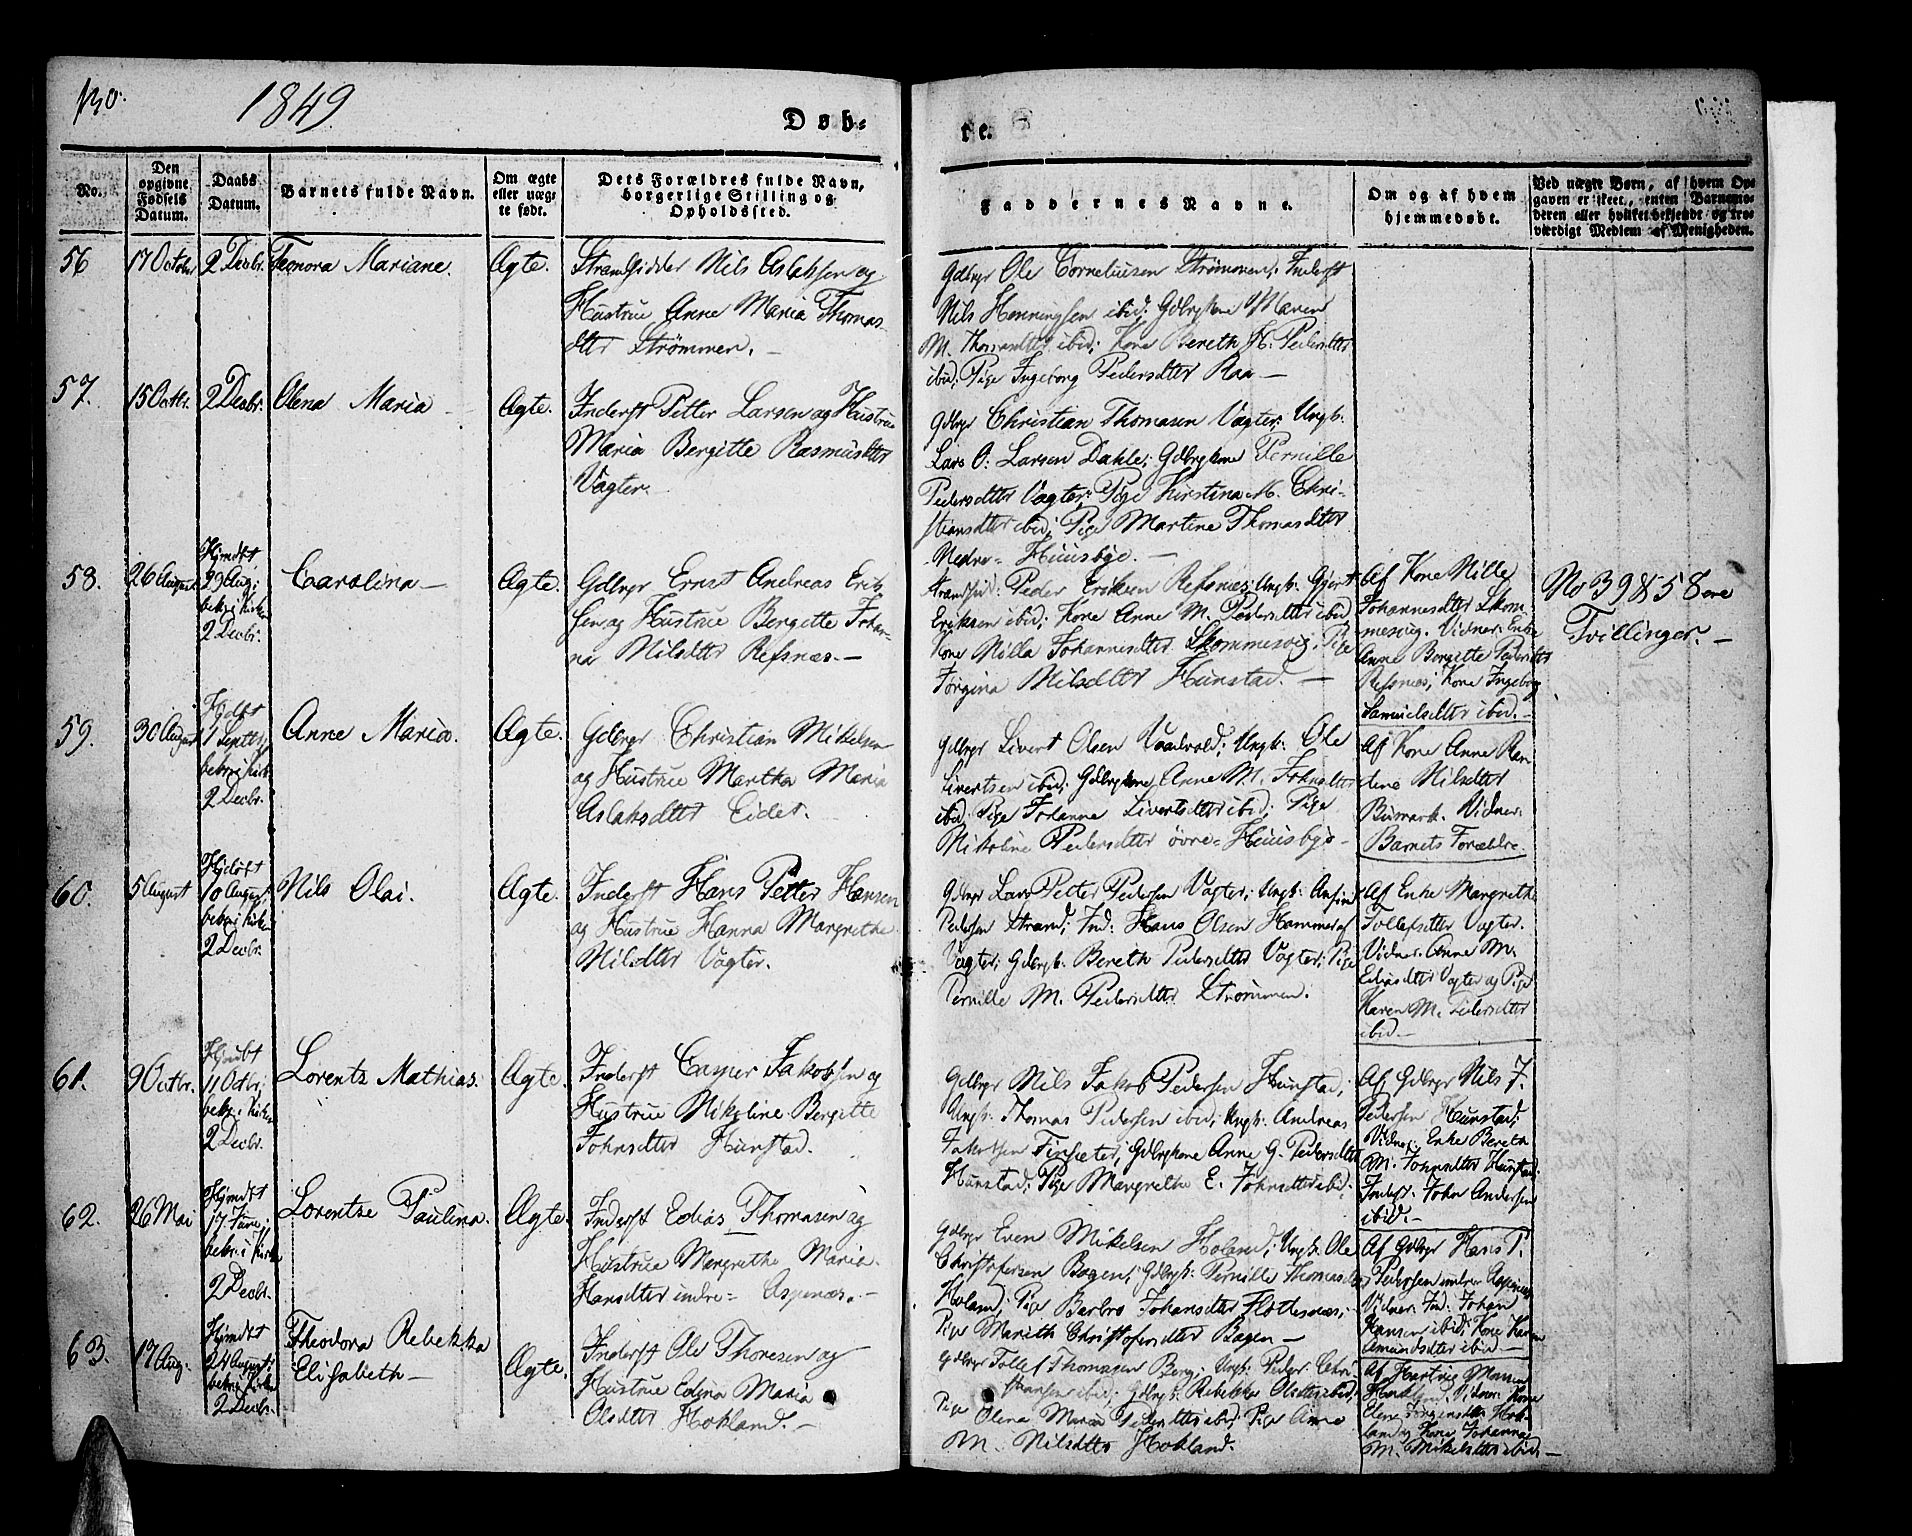 130.
1849.
Døb-
te.
No.
Den opgivne Fødsels Datum.
Daabs Datum.
Barnets fulde Navn.
Om ægte eller uægte født.
Dets Forældres fulde Navn, borgerlige Stilling og Opholdssted.
Faddernes Navne.
Om og af hvem hjemmedøbt.
Ved uægte Børn, af hvem Opgaven er skeet, enten Barnemoderen eller hvilket bekjendt og troværdigt Medlem af Menigheden.
56
17 October
2 Decbr.
Leonora Mariane.
Ægte.
Strandsidder Nils Aslaksen og
Hustrue Anne Maria Thomas-
dtter Strømmen. -
Gdbrgr Ole Corneliusen Strømmen; Inderst
Nils Henningsen ibid; Gdbrgkone Maren
M. Thomasdtter ibid; Kone Bereth H. Pedersdtter
ibid; Pige Ingeborg Pedersdtter Raa -
57.
15 Octbr.
2 Decbr.
Olena Maria
Ægte.
Inderst Petter Larsen og Hustrue
Maria Bergitte Rasmusdtter
Vagter.
Gdbrgr Christian Thomasen Vagter; Ungk:
Lars O: Larsen Dahle; Gdbrgkone Pernille
Pedersdtter Vagter; Pige Kirstina M. Chri-
stiansdtter ibid; Pige Martine Thomasdtter
Nedre- Huusbye. -
58.
26 August
Hjmdbt
29 Aug;
bekr. i Kirken
2 Decbr.
Carolina -
Ægte.
Gdbrgr Ernst Andreas Erik-
sen og Hustrue Bergitte Johan-
na Nilsdtter Refsnæs. -
Strandsid: Peder Eriksen Refsnæs; Ungk: Gjert
Eriksen ibid; Kone Anne M. Pedersdtter ibid
Kone Nilla Johannesdtter Skommesvig; Pige
Jørgina Nilsdtter Hunstad. -
Af Kone Nille
Johannesdtter Skom-
mesvig. Vidner: Enke
Anne Bergitte Pedersdtter
Refsnæs; Kone Ingeborg
Samuelsdtter ibid. -
No 39 & 58 ere
Tvillinger. -
59.
30 August
1 Septbr;
bekr. i Kirk:
2 Decbr.
Anne Maria.
Ægte.
Gdbrgr Christian Mikelsen
og Hustrue Martha Maria
Aslaksdtter Eidet.
Gdbrgr Sivert Olsen Vaadvold; Ungk: Ole
Sivertsen ibid; Gdbrgkone Anne M. Johnsdtter
ibid; Pige Johanne Sivertsdtter ibid; Pige
Nikoline Pedersdtter øvre- Huusbye -
Af Kone Anne Ran-
dine Nilsdtter
Bismark. Vidner:
Barnets Forældre.
60.
5 August
10 August;
bekr. i Kirken
2 Decbr.
Nils Olai.
Ægte.
Inderst Hans Petter Hansen
og Hustrue Hanna Margrethe
Nilsdtter Vagter.
Gdbrgr Lars Peter Pedersen Vagter; Ungk: Ansund
Pedersen Strand; Ind: Hans Olsen Hammer af
Vagter; Gdbrgk: Bereth Pedersdtter Vagter; Pige
Pernille M. Pedersdtter Strømmen.
Af Enke Margrethe
Tollefsdtter Vagter.
Vidner: Anne M.
Ediasdtter Vagter og Pige
Karen M. Pedersdtter
ibid -
61.
9 Octbr.
11 Octbr;
bekr. i Kirken
2 Decbr.
Lorents Mathias.
Ægte.
Inderst Casper Jakobsen og
Hustrue Nikoline Bergitte
Johnsdtter Hunstad.
Gdbrgr Nils Jakob Pedersen Hunstad;
Ungk: Thomas Pedersen ibid; Ungk: Andreas
Jakobsen Finsæter; Gdbrgkone Anne G. Pedersdtter
Hunstad; Pige Margrethe E. Johnsdtter ibid;
Af Gdbrgr Nils J.
Pedersen Hunstad;
Vidner: Enke Bereth
M. Johnsdtter Hunstad;
Inderst John Andersen
ibid. -
62.
26 Mai
Hjmdbt
17 June;
bekr. i Kirken
2 Decbr.
Lorentze Paulina.
Ægte.
Inderst Edias Thomasen og
Hustrue Margrethe Maria
Hansdtter indre- Aspenæs. -
Gdbrgr Even Mikelsen Holand; Ungk: Ole
Christofersen Bogen; Gdbrgk: Pernille Thomasdtter
Holand; Pige Barbro Johansdtter Flottesnæs;
Pige Marith Christofersdtter Bogen -
Af Gdbrgr Hans P.
Pedersen indre Aspenæs
Vidner: Ind: Johan
Hansen ibid; Kone Karen
Amundsdtter ibid -
63.
17 Aug.
Hjmdbt
24 August;
bekr. i Kirken
2 Decbr.
Theodora Rebekka
Elisabeth -
Ægte.
Inderst Ole Thoresen og
Hustrue Edina Maria
Olsdtter Hokland. -
Gdbrgr Tollef Thomasen Berg; Ungk: Peder Chri-
stiansen ibid; Gdbrgk: Rebekka Olsdtter ibid;
Pige Olena Maria Pedersdtter ibid; Pige Anne
M. Nilsdtter Hokland.
Af Hartvig Monsen
Hokland. Vidner: Kone
Elen Jørgensdtter Hok-
land og Kone Johanna
M. Mikelsdtter ibid. -